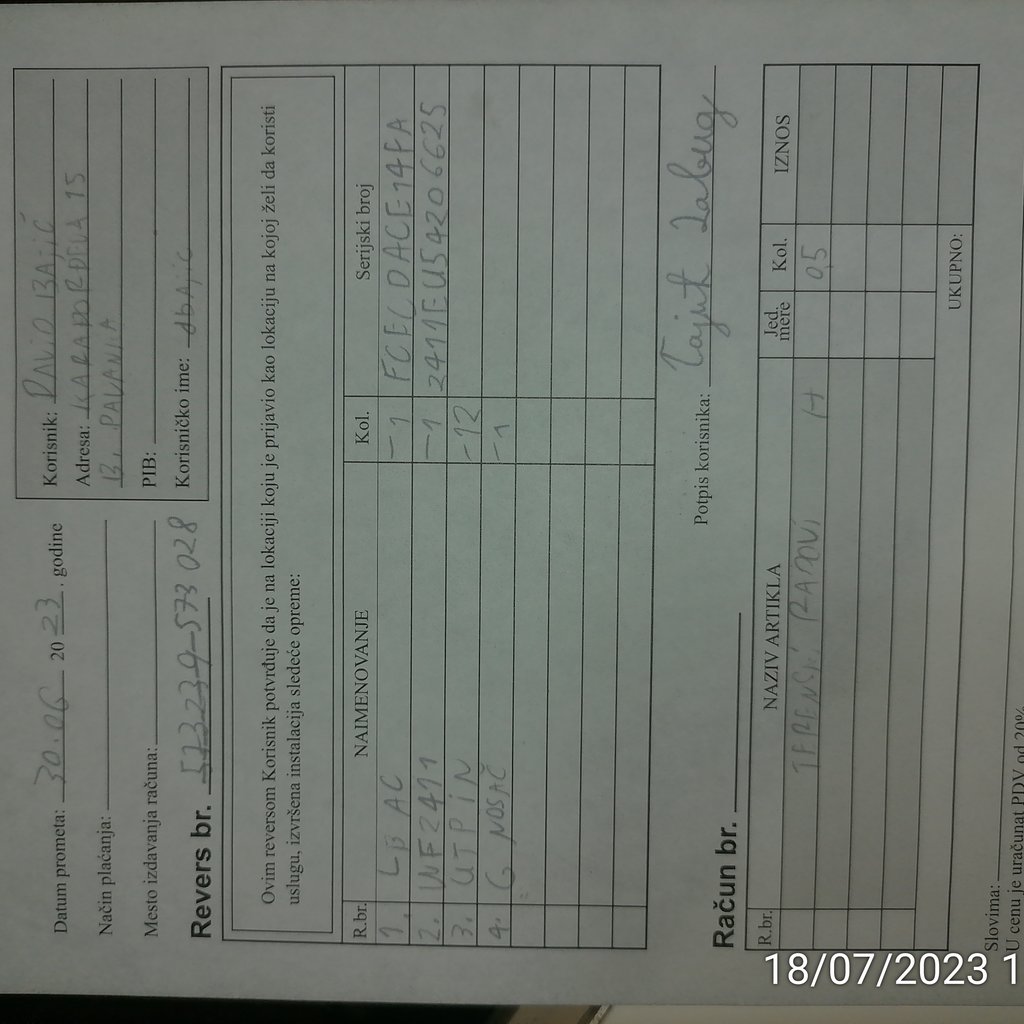 Datum prometa: 30.06 2023. godine
Način plaćanja:
Mesto izdavanja računa:
Revers br. 573239-573 028
Korisnik: DAVID BAJIĆ
Adresa: KARAĐORĐEVA 15
B. PALANKA
PIB:
Korisničko ime: dbajic
Ovim reversom Korisnik potvrđuje da je na lokaciji koju je prijavio kao lokaciju na kojoj želi da koristi
uslugu, izvršena instalacija sledeće opreme:
R.br. NAIMENOVANJE Kol. Serijski broj
1. LB AC -1 FCECDACE14FA
2. WF2411 -1 2411EU5420 6625
3. UTP IN -12
4. G NOSAČ -1
Potpis korisnika:
Račun br.
R.br. NAZIV ARTIKLA Jed. mere Kol. IZNOS
TERENSKI RADOVI H 0,5
UKUPNO:
Slovima:
U cenu je uračunat PDV od 20%
18/07/2023 1